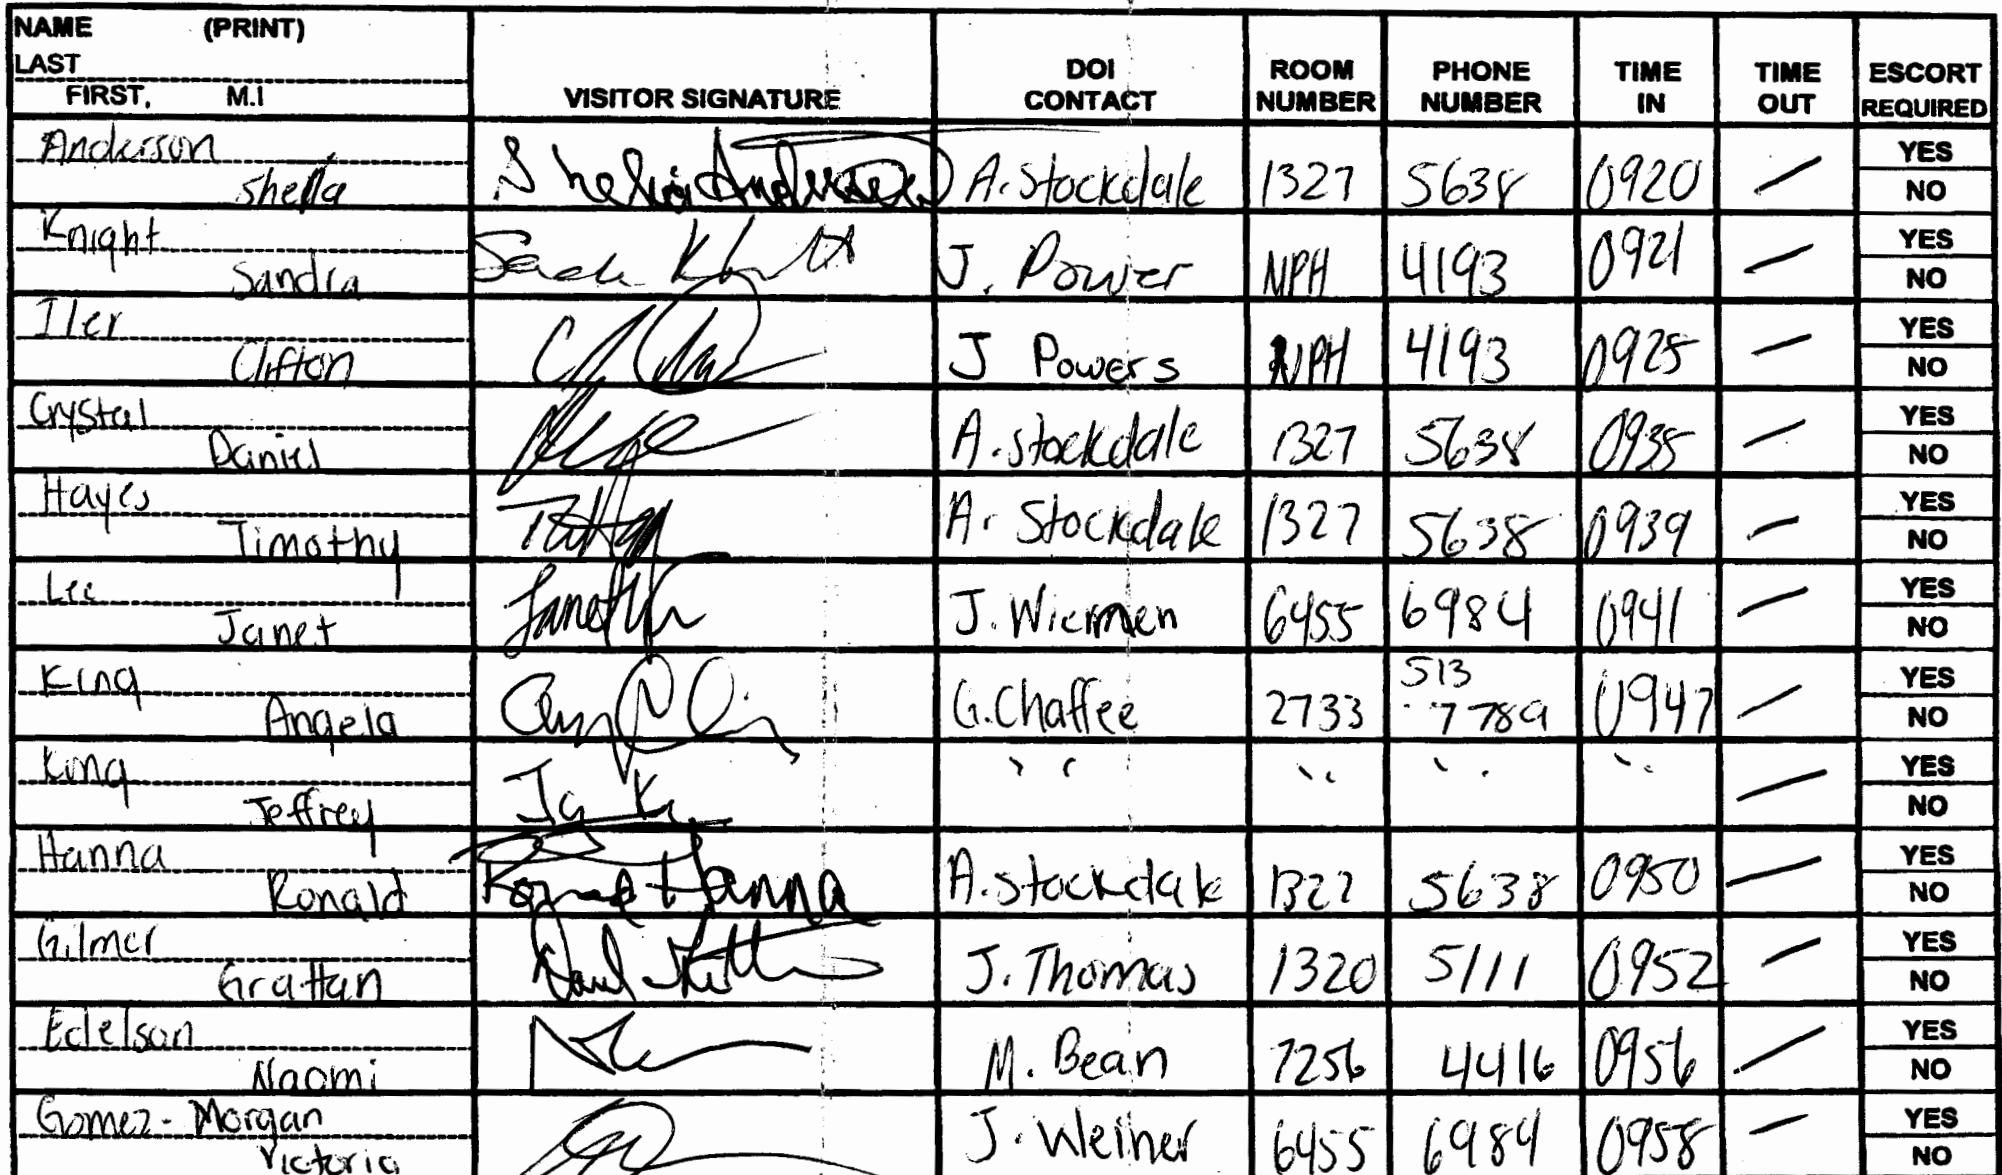 NAME (PRINT)
LAST
FIRST, M.I
VISITOR SIGNATURE
DOI CONTACT
ROOM NUMBER
PHONE NUMBER
TIME IN
TIME OUT
ESCORT REQUIRED
Anderson
Sheila Sheila Anderson A. Stockdale 1327 5638 0920 — YES NO
Knight
Sandra J. Power NPH 4193 0921 — YES NO
Iler
Clifton J Powers NPH 4193 0925 — YES NO
Crystal
Daniel A. Stockdale 1327 5638 0935 — YES NO
Hayes
Timothy A. Stockdale 1327 5638 0939 — YES NO
Lee
Janet Janet J. Wiermen 6455 6984 0941 — YES NO
King
Angela G. Chaffee 2733 513 7789 0947 — YES NO
King
Jeffrey " " " " " — YES NO
Hanna
Ronald Ronald Hanna A. Stockdale 1327 5638 0950 — YES NO
Gilmer
Grattan J. Thomas 1320 5111 0952 — YES NO
Edelson
Naomi M. Bean 7256 4416 0956 — YES NO
Gomez-Morgan
Victoria J. Weiner 6455 6984 0958 — YES NO